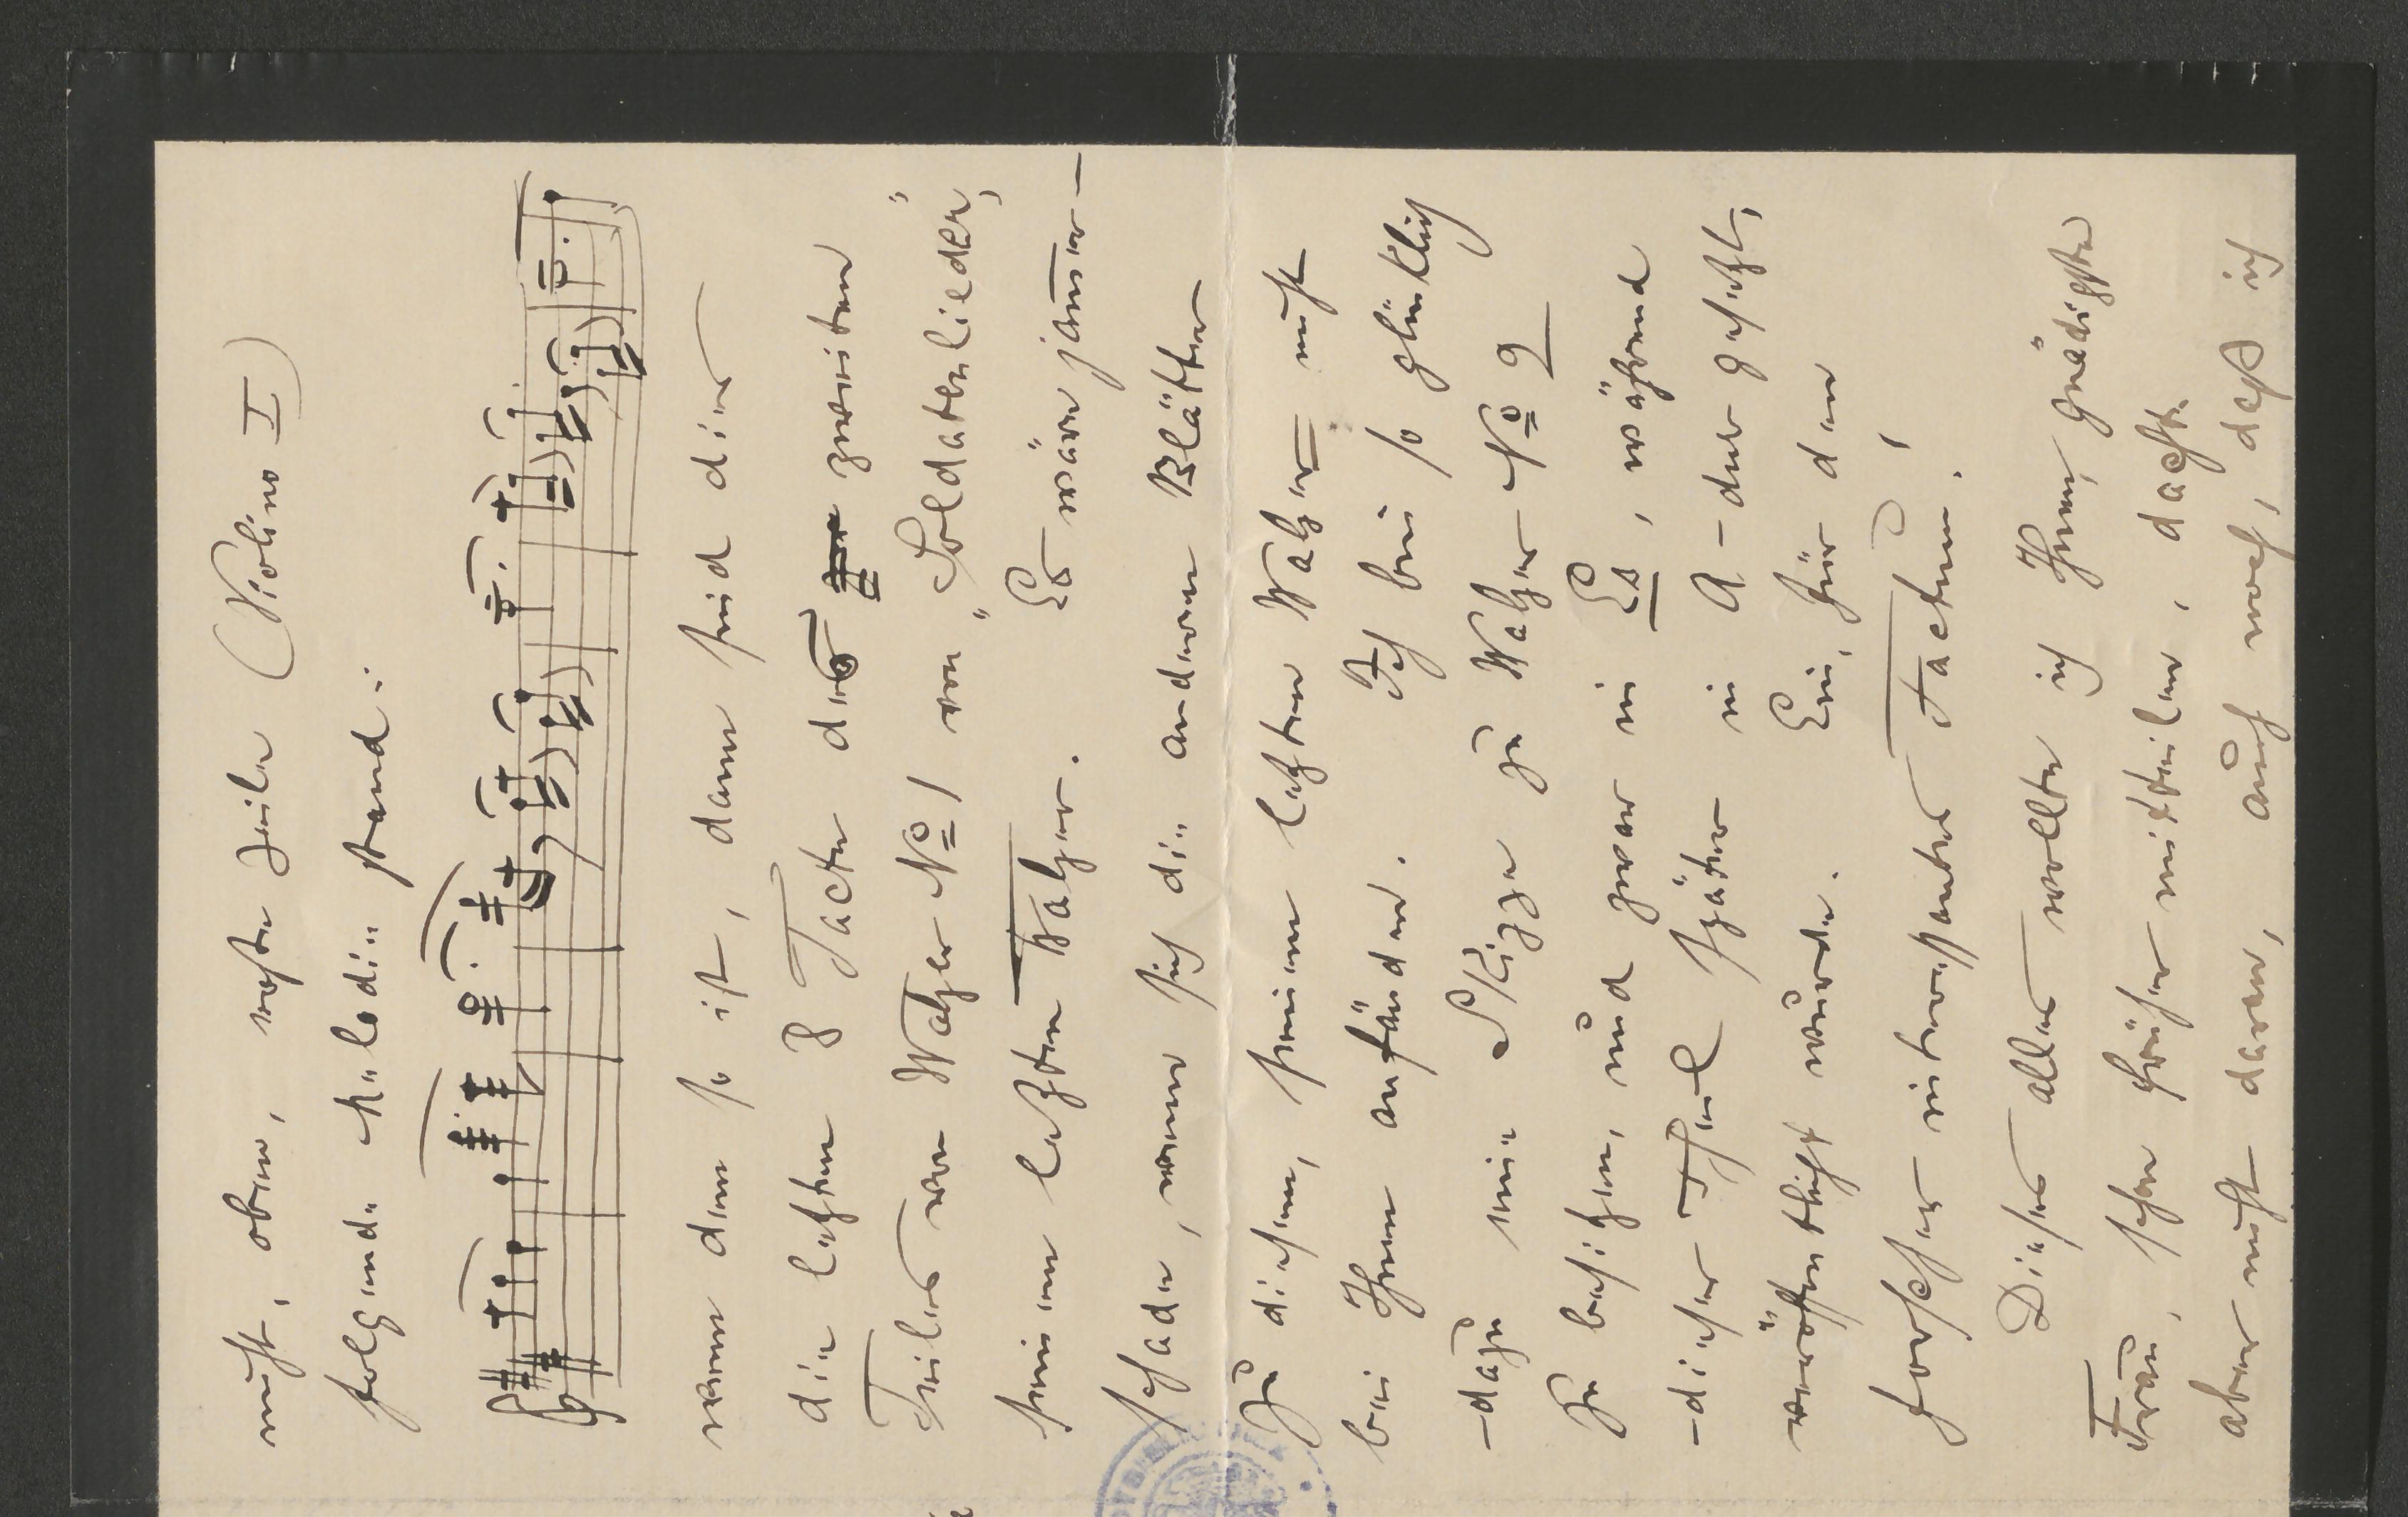 nicht, oben, erste Zeile (Violino I)
folgende Melodie stand:
wenn dem so ist, dann sind dies
die letzten 8 Tacte des zweiten
Teiles von Walzer No 1 von „Soldatenlieder“,
seinem letzten Walzer. Es wäre jammer-
schade, wenn sich die anderen Blätter
zu diesem, seinem letzten Walzer nicht
bei Ihnen anfänden. Ich bin so glücklich
- dazu eine Skizze zu Walzer No 2
zu besitzen, und zwar in Es, während
- dieser Theil später in A-dur gesetzt,
veröffentlicht wurde. Ein, für den
Forscher interessantes Factum!
Dieses alles wollte ich Ihnen, gnädigste
Frau, schon früher mitteilen, dachte
aber nicht daran, auch noch, daß ich